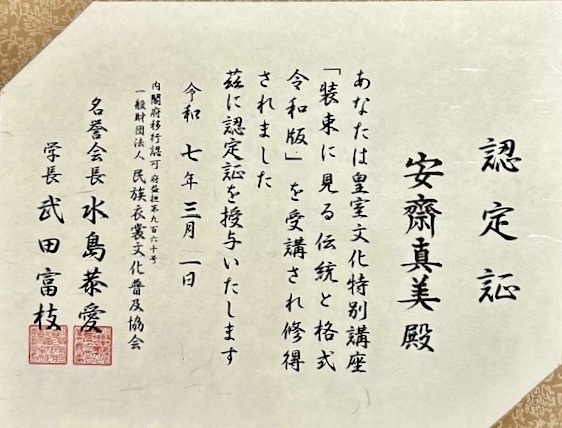 認定証
安齋真美殿
あなたは皇室文化特別講座
「装束に見る伝統と格式
令和版」を受講され修得
されました
茲に認定証を授与いたします
令和七年三月一日
内閣府移行認可 府益担第九百六十号
一般財団法人 民族衣裳文化普及協会
名誉会長 水島恭愛
学長 武田富枝